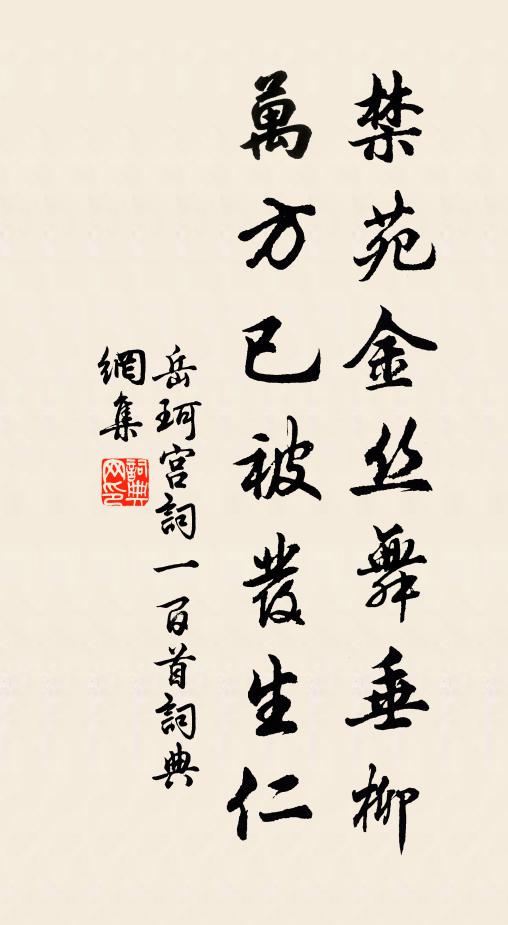 禁苑金丝舞垂柳
萬方已被發生仁
岳珂宮詞一百首詞典
網集
詞典
网印